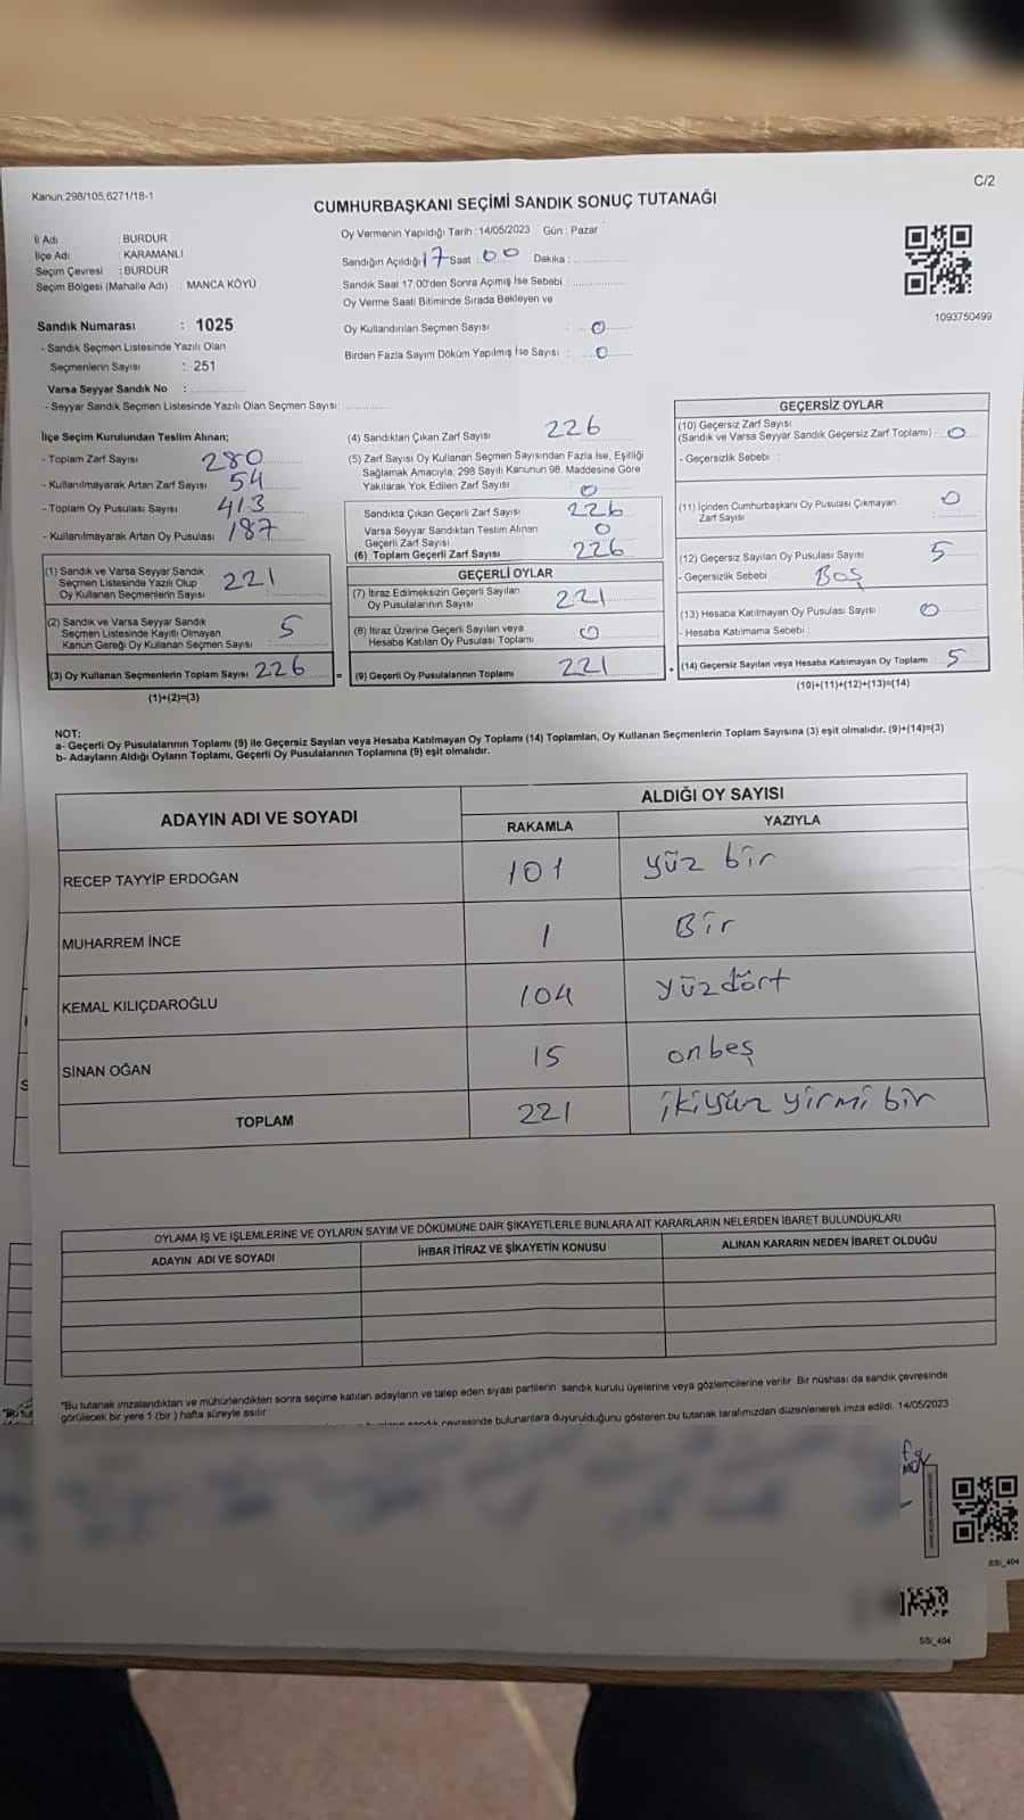 C/2
Kanun:298/105,6271/18-1
CUMHURBAŞKANI SEÇİMİ SANDIK SONUÇ TUTANAĞI
İl Adı : BURDUR
İlçe Adı : KARAMANLI
Seçim Çevresi : BURDUR
Seçim Bölgesi (Mahalle Adı) : MANCA KÖYÜ
Sandık Numarası : 1025
- Sandık Seçmen Listesinde Yazılı Olan
Seçmenlerin Sayısı : 251
Varsa Seyyar Sandık No :
- Seyyar Sandık Seçmen Listesinde Yazılı Olan Seçmen Sayısı:
Oy Vermenin Yapıldığı Tarih : 14/05/2023 Gün : Pazar
Sandığın Açıldığı 17 Saat 00 Dakika :
Sandık Saat 17.00'den Sonra Açımış İse Sebebi :
Oy Verme Saati Bitiminde Sırada Bekleyen ve
Oy Kullandırılan Seçmen Sayısı : 0
Birden Fazla Sayım Döküm Yapılmış İse Sayısı : 0
1093750499
İlçe Seçim Kurulundan Teslim Alınan;
- Toplam Zarf Sayısı 280
- Kullanılmayarak Artan Zarf Sayısı 54
- Toplam Oy Pusulası Sayısı 413
- Kullanılmayarak Artan Oy Pusulası 187
(1) Sandık ve Varsa Seyyar Sandık
Seçmen Listesinde Yazılı Olup
Oy Kullanan Seçmenlerin Sayısı 221
(2) Sandık ve Varsa Seyyar Sandık
Seçmen Listesinde Kayıtlı Olmayan
Kanun Gereği Oy Kullanan Seçmen Sayısı 5
(3) Oy Kullanan Seçmenlerin Toplam Sayısı 226
(1)+(2)=(3)
(4) Sandıktan Çıkan Zarf Sayısı 226
(5) Zarf Sayısı Oy Kullanan Seçmen Sayısından Fazla İse, Eşitliği
Sağlamak Amacıyla, 298 Sayılı Kanunun 98. Maddesine Göre
Yakılarak Yok Edilen Zarf Sayısı 0
Sandıkta Çıkan Geçerli Zarf Sayısı 226
Varsa Seyyar Sandıktan Teslim Alınan
Geçerli Zarf Sayısı 0
(6) Toplam Geçerli Zarf Sayısı 226
GEÇERLİ OYLAR
(7) İtiraz Edilmeksizin Geçerli Sayılan
Oy Pusulalarının Sayısı 221
(8) İtiraz Üzerine Geçerli Sayılan veya
Hesaba Katılan Oy Pusulası Toplamı 0
= (9) Geçerli Oy Pusulalarının Toplamı 221
GEÇERSİZ OYLAR
(10) Geçersiz Zarf Sayısı
(Sandık ve Varsa Seyyar Sandık Geçersiz Zarf Toplamı) 0
- Geçersizlik Sebebi :
(11) İçinden Cumhurbaşkanı Oy Pusulası Çıkmayan
Zarf Sayısı 0
(12) Geçersiz Sayılan Oy Pusulası Sayısı 5
- Geçersizlik Sebebi Boş
(13) Hesaba Katılmayan Oy Pusulası Sayısı 0
- Hesaba Katılmama Sebebi :
+ (14) Geçersiz Sayılan veya Hesaba Katılmayan Oy Toplamı 5
(10)+(11)+(12)+(13)=(14)
NOT:
a- Geçerli Oy Pusulalarının Toplamı (9) ile Geçersiz Sayılan veya Hesaba Katılmayan Oy Toplamı (14) Toplamları, Oy Kullanan Seçmenlerin Toplam Sayısına (3) eşit olmalıdır. (9)+(14)=(3)
b- Adayların Aldığı Oyların Toplamı, Geçerli Oy Pusulalarının Toplamına (9) eşit olmalıdır.
ADAYIN ADI VE SOYADI
ALDIĞI OY SAYISI
RAKAMLA YAZIYLA
RECEP TAYYİP ERDOĞAN 101 yüz bir
MUHARREM İNCE 1 Bir
KEMAL KILIÇDAROĞLU 104 yüzdört
SİNAN OĞAN 15 onbeş
TOPLAM 221 ikiyüz yirmi bir
OYLAMA İŞ VE İŞLEMLERİNE VE OYLARIN SAYIM VE DÖKÜMÜNE DAİR ŞİKAYETLERLE BUNLARA AİT KARARLARIN NELERDEN İBARET BULUNDUKLARI
ADAYIN ADI VE SOYADI İHBAR İTİRAZ VE ŞİKAYETİN KONUSU ALINAN KARARIN NEDEN İBARET OLDUĞU
"Bu tutanak imzalandıktan ve mühürlendikten sonra seçime katılan adayların ve talep eden siyasi partilerin sandık kurulu üyelerine veya gözlemcilerine verilir. Bir nüshası da sandık çevresinde
görülecek bir yere 1 (bir) hafta süreyle asılır.
sandık çevresinde bulunanlara duyurulduğunu gösteren bu tutanak tarafımızdan düzenlenerek imza edildi. 14/05/2023
SSI_404
SSI_404